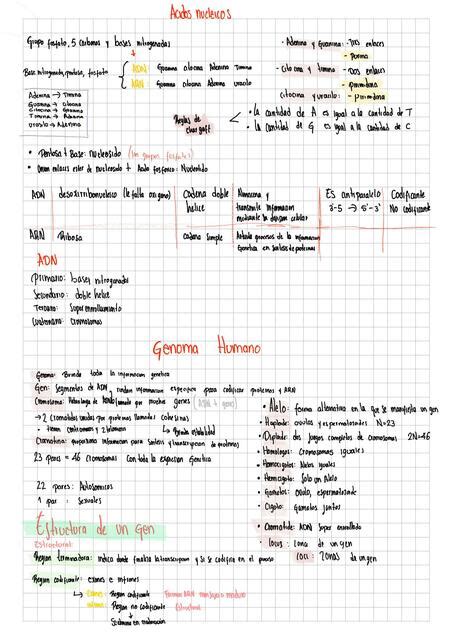 Acidos nucleicos
Grupo fosfato, 5 carbonos y bases nitrogenadas
Base nitrogenada, pentosa, fosfato
ADN: Guanina citocina Adenina Timina
ARN: Guanina citocina Adenina uracilo
- Adenina y Guanina: - Dos enlaces
- Purina
- Citocina y timina: - Dos enlaces
- pirimidina
Citocina y uracilo: - pirimidina
Adenina → Timina
Guanina → citocina
Citocina → Guanina
Timina → Adenina
uracilo → Adenina
Reglas de chargaff
• La cantidad de A es igual a la cantidad de T
• La cantidad de G es igual a la cantidad de C
• Pentosa + Base: nucleosido (sin grupos fosfatos)
• enlaces ester de nucleosido + Acido fosforico: Nucleotido
ADN
desoxirribonucleico (le falta oxigeno)
Cadena doble helice
Almacena y transmite informacion mediante la division celular
Es antiparalelo 3-5 → 5'-3'
Codificante
No codificante
ARN
Ribosa
cadena simple
procesos de la informacion Genetica en sintesis de proteinas
ADN
Primario: bases nitrogenadas
Secundario: doble helice
Terciario: Superenrollamiento
Cuaternario: Cromosomas
Genoma Humano
Genoma: Brinda toda la informacion genetica
Gen: Segmentos de ADN, brindan informacion especifica para codificar proteinas y ARN
Cromosoma: formado por muchos genes (ADN + gene)
→ 2 cromatides unidas por proteinas llamadas cohesinas
• tienen centromeros y 2 telomeros
↳ Brinda estabilidad
Cromatina: proporciona informacion para sintesis y transcripcion de proteinas
23 pares = 46 cromosomas con toda la expresion Genetica
22 pares: Autosomicos
1 par: Sexuales
• Alelo: forma alternativa en la que se manifiesta un gen
• Haploide: ovulos y espermatozoides N=23
• Diploide: dos juegos completos de cromosomas 2N=46
• Homologos: Cromosomas iguales
• Homocigotos: Alelos iguales
• Hemicigoto: Solo un Alelo
• Gametos: ovulo, espermatozoide
• Cigoto: Gametos juntos
• Cromatide: ADN Super enrollado
• locus: zona de un gen
loci: zonas de un gen
Estructura de un Gen
Estructural:
Region terminadora: indica donde finaliza la transcripcion y si se codifica en el proceso
Region codificante: exones e intrones
↳ Exones: Region codificante Forman ARN mensajero maduro
intrones: Region no codificante Estructural
↳ Se elimina en maduracion